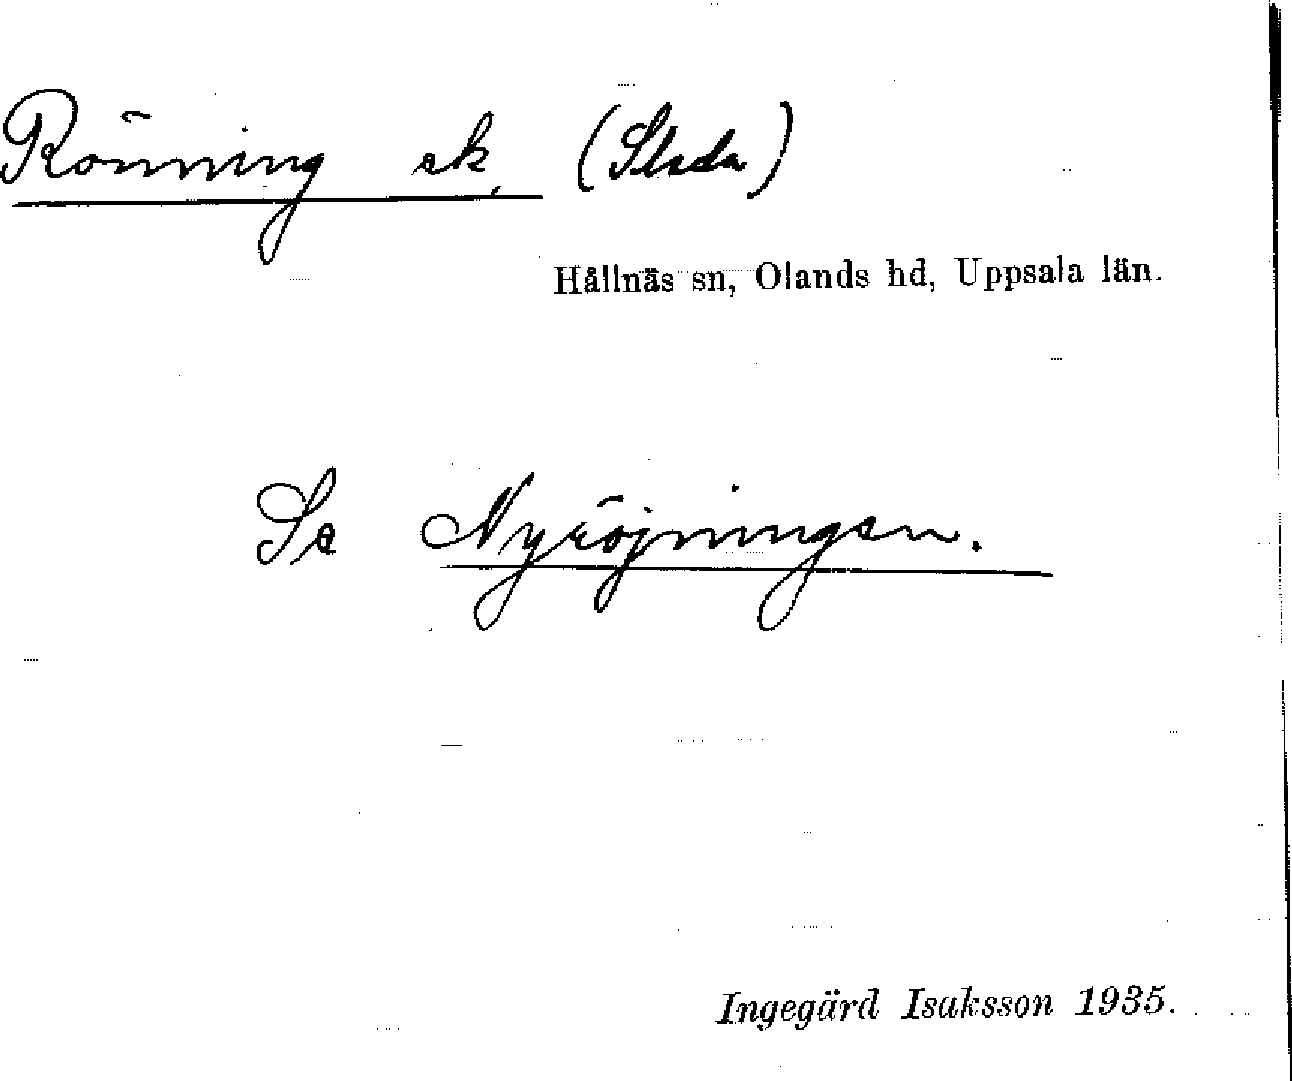 Rönning ek, (Slada)
Hållnäs sn, Olands hd, Uppsala län.
Se Nyröjningen.
Ingegärd Isaksson 1935.